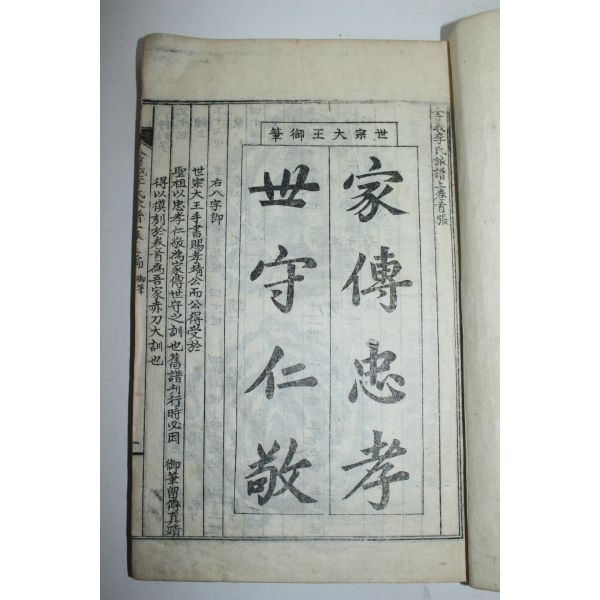 全義李氏派譜上卷首張
世宗大王御筆
家傳忠孝
世守仁敬
右八字卽
世宗大王手書賜孝靖公而公得受於
聖祖以忠孝仁敬爲家傳世守之訓也舊譜刊行時必因
御筆留傳眞蹟
得以摸刻於卷首爲吾家赤刀大訓也
御筆